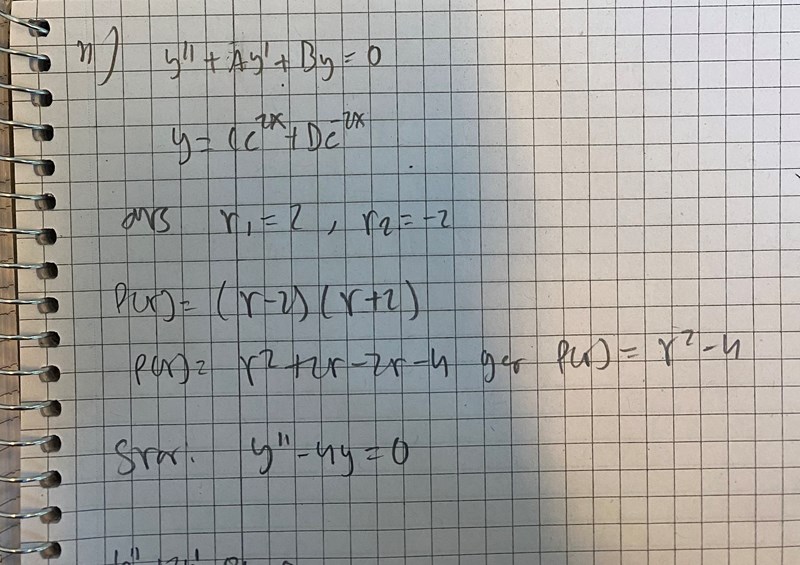 4) y'' + Ay' + By = 0
y = Ce^2x + De^-2x
dvs r₁ = 2 , r₂ = -2
P(r) = (r-2)(r+2)
P(r) = r² + 2r - 2r - 4 ger P(r) = r² - 4
Svar: y'' - 4y = 0